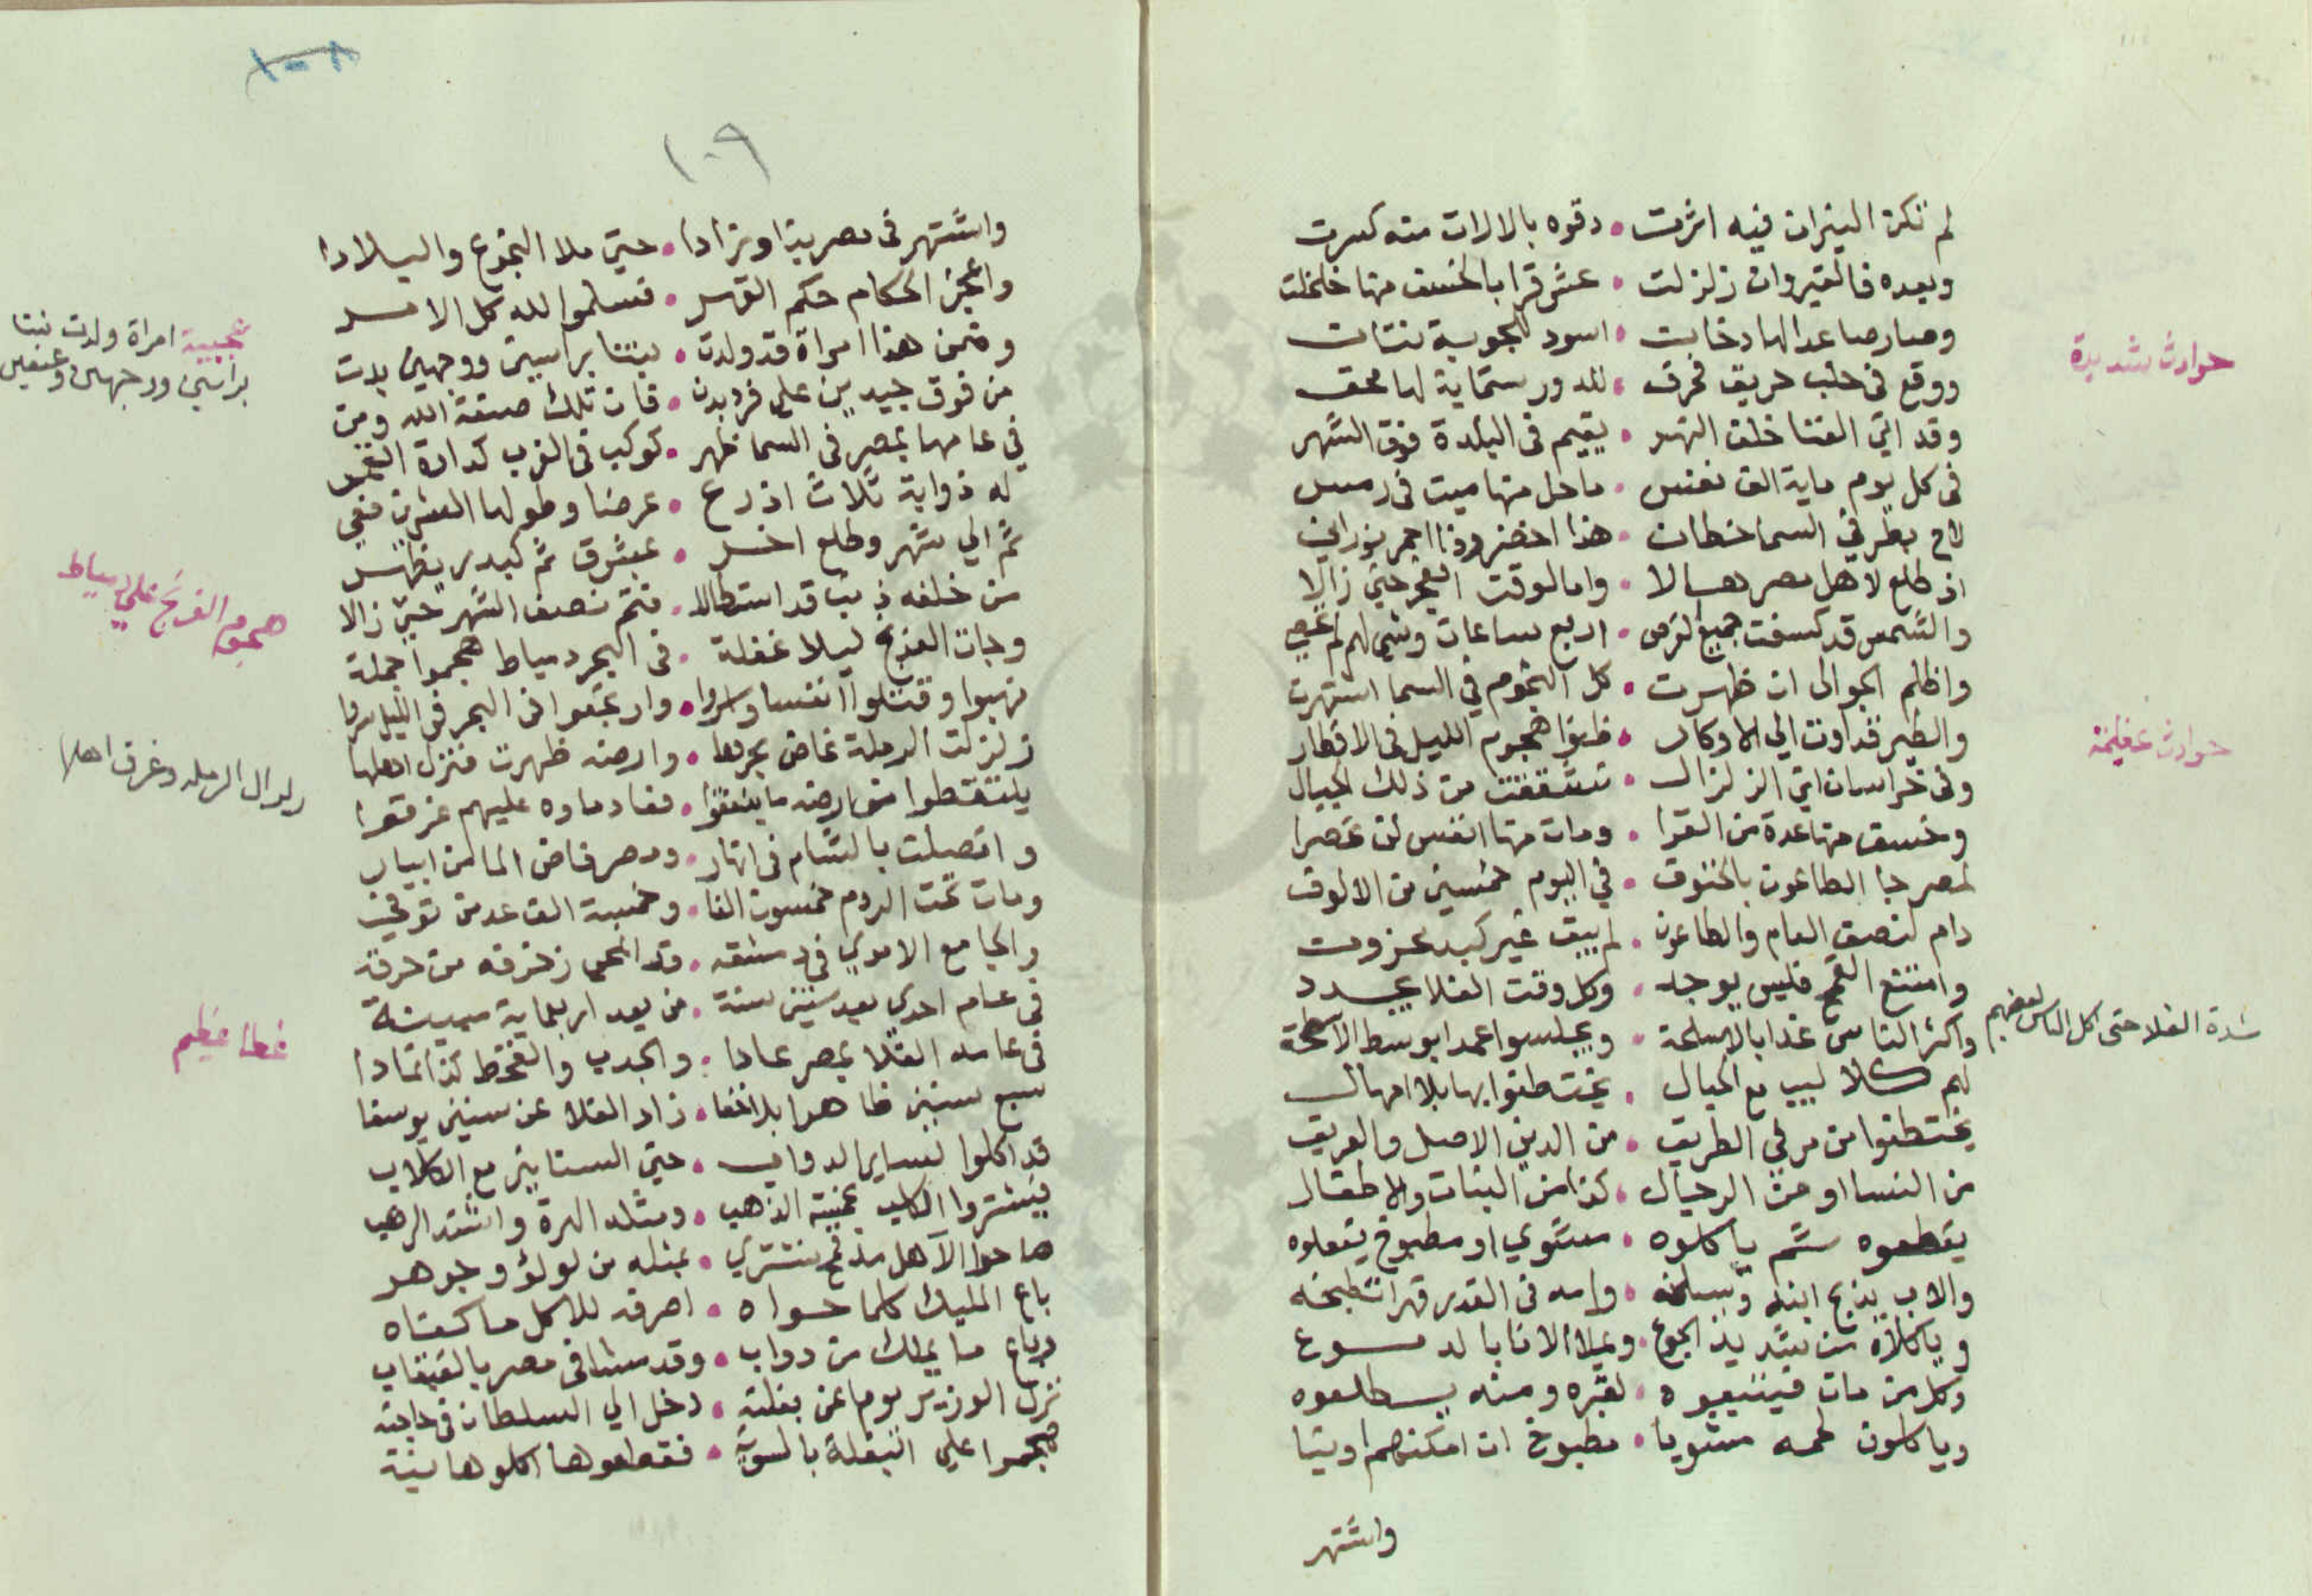 لم تكن النيران فيه اثرت • دقوه بالالات منه كسرت
وبعده فالقيروان زلزلت • عشر قرا بالخسف منها خلخلت
وصار صاعدا لها دخان • اسود اعجوبة نتنات
حوادث شديدة
ووقع في حلب حريق فحرق • للدور ستماية لها محق
وقد اتي الفنا خلف النهر • يقيم في البلدة فوق الشهر
في كل يوم ماية الف نفس • ما حل منها ميت في رمس
لاح بطرفي السما خطان • هذا اخضر وذا احمر نوراني
اذ طلع لاهل مصر هالا • واما لوقت الفجر حتي زالا
والشمس قد كسفت جميع القرص • اربع ساعات وشي لهم لم يحصي
واظلم الجو الي ان ظهرت • كل النجوم في السما اشتهرت
والطير قد اوت الي الاوكار • ظنوا هجوم الليل في الاقطار
حوادث عظيمة
وفي خراسان اتي الزلزال • تشققت من ذلك الجبال
وخسف منها عدة من القرا • ومات منها انفس لن تحصرا
لمصر جا الطاعون بالحتوف • في اليوم خمسين من الالوف
دام لنصف العام والطاعون • لم يبق غير كبد محزون
وامتنع القمح فليس يوجد • وكل وقت الغلا يجدد
شدة الغلا حتى اكل الناس بعضهم
واكثر الناس غدا بالاسلحة • ويجلسوا عمدا بوسط الاسطحة
لهم كلاليب مع الحبال • يختطفوا بها بلا امهال
يختطفوا من مر في الطريق • من الدين الاصل والعريق
من النسا او من الرجال • كذا من البنات والاطفال
يقطعوه ثم ياكلوه • مشوي او مطبوخ يفعلوه
والاب يذبح ابنه ويسلخه • وامه في القدر قهرا تطبخه
وياكلاه من شديد الجوع • ويملا الانا بالدموع
وكل من مات فيتبعوه • لقبره ومنه يطلعوه
وياكلون لحمه مشويا • مطبوخ ان امكنهم او نيا
واشتهر
١٠٨
١٠٩
واشتهر في مصر بذا وزادا • حتي ملا النجوع والبلادا
واعجز الحكام حكم القهر • فسلموا لله كل الامر
عجيبة امراة ولدت بنتا براسين ووجهين وعنقين
وضمن هذا امراة قد ولدت • بنتا براسين ووجهين بدت
من فوق جيدين علي فرد بدن • فان تلك صنعة الله ومن
في عامها بمصر في السما ظهر • كوكب في الغرب كدارة القمر
له ذوابة ثلاث اذرع • عرضا وطولها العشرين فعي
ثم الي شهر وطلع اخر • بمشرق ثم كبدر يظهر
من خلفه ذنب قد استطالا • فتم نصف الشهر حتي زالا
هجوم الفرنج علي دمياط
وجات الفرنج ليلا غفلة • في البحر دمياط هجموا جملة
نهبوا وقتلوا انفسا واسروا • وارتجعوا في البحر في الليل سروا
زلزال الرملة وغرق اهلها
زلزلت الرملة غاض بحرها • وارضه ظهرت فنزل اهلها
يلتقطوا من ارضه ما ينفقوا • فعاد ماوه عليهم غرقوا
واتصلت بالشام في انهار • ومصر فاض الما من ابيار
ومات تحت الردم خمسون الفا • وخمسة الف عد من توفي
والجامع الاموي في دمشقه • قد انمحي زخرفه من حرقه
في عام احدي بعد ستين سنة • من بعد اربعماية مبينة
غلا عظيم
في عامه الغلا بمصر عادا • والجدب والقحط كذا تمادا
سبع سنين ظاهرا بلا خفا • زاد الغلا عن سنين يوسفا
قد اكلوا لساير الدواب • حتي السنانير مع الكلاب
فيشتروا الكلب بخمسة الذهب • ومثله الهرة واشتد الرهب
هاجوا الاهل مذ قمح يشتري • بمثله من لولؤ وجوهر
باع المليك كلما حواه • اصرفه للاكل ما كفاه
وباع ما يملك من دواب • وقد مشا في مصر بالقبقاب
نزل الوزير يوما عن بغلته • دخل الي السلطان في حاجته
هجموا علي البغلة بالسوية • فقطعوها اكلوها نية